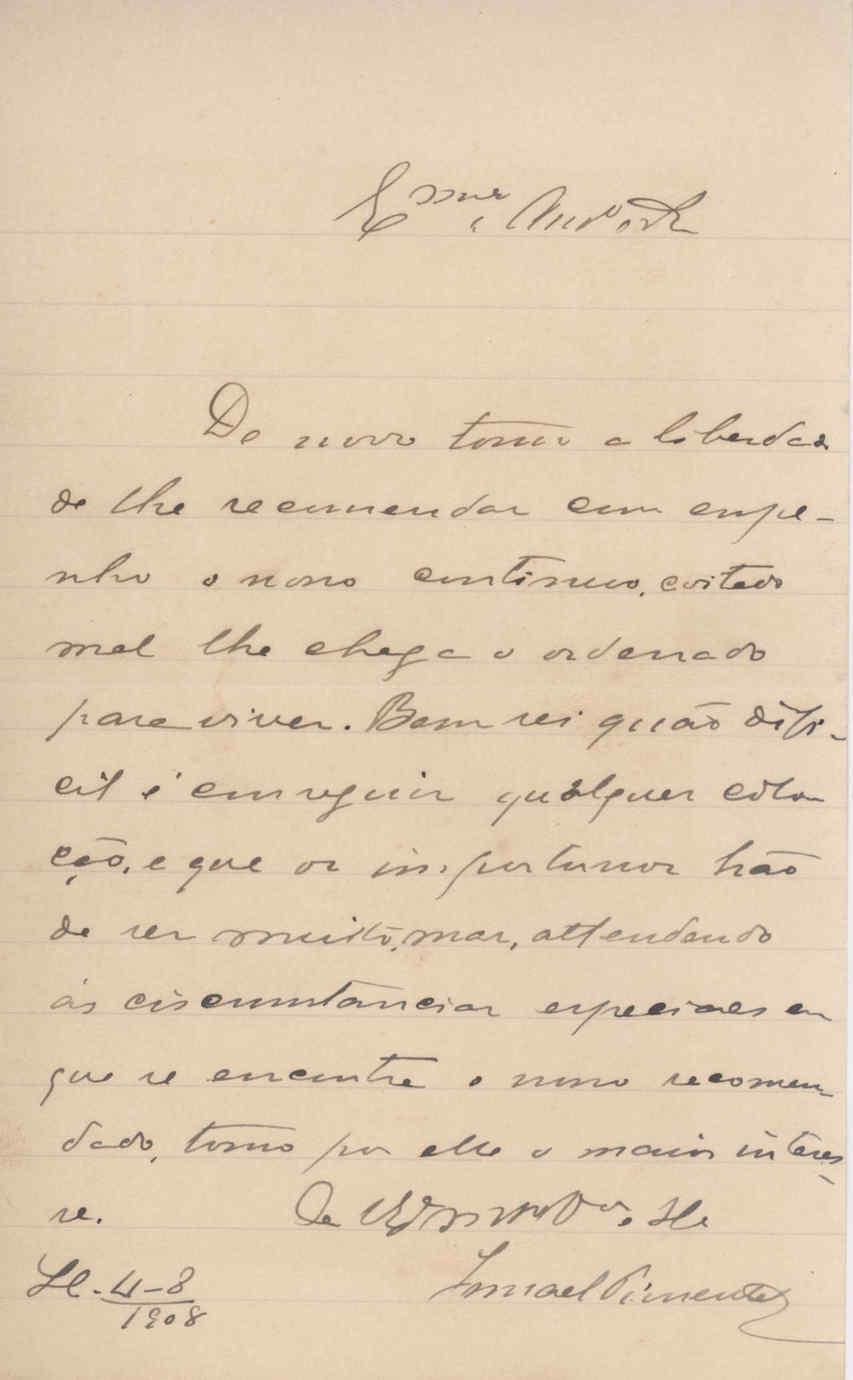 Exmo
De novo tomo a liberdade
de lhe recomendar com empe-
nho o nosso continuo, coitado
mal lhe chega o ordenado
para viver. Bem sei quão difi-
cil é conseguir qualquer colo
cação, e que os importunos hão
de ser muitos, mas, attendendo
ás circumstancias especiaes em
que se encontra o nosso recomen
dado, tomo por elle o maior interes
se. De V. Exa
Sl. 4-8
1908
Ismael Pimentel